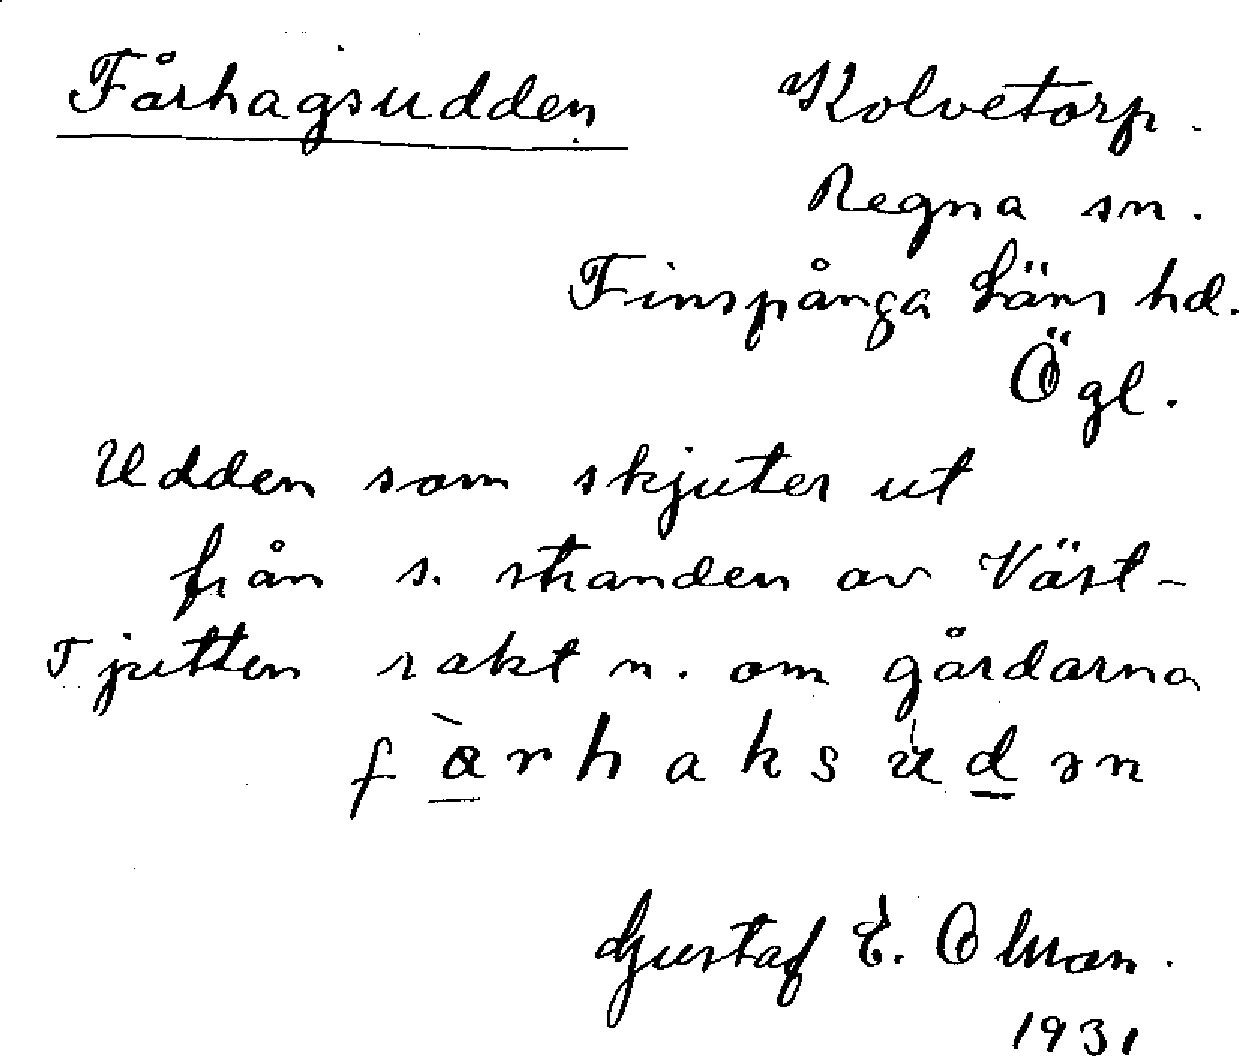 Fårhagsudden Kolvetorp.
Regna sn.
Finspånga läns hd.
Ögl.
Udden som skjuter ut
från s. stranden av Väst-
Tjutten rakt n. om gårdarna
f à r h a k s ù d ə n
Gustaf E. Olman.
1931